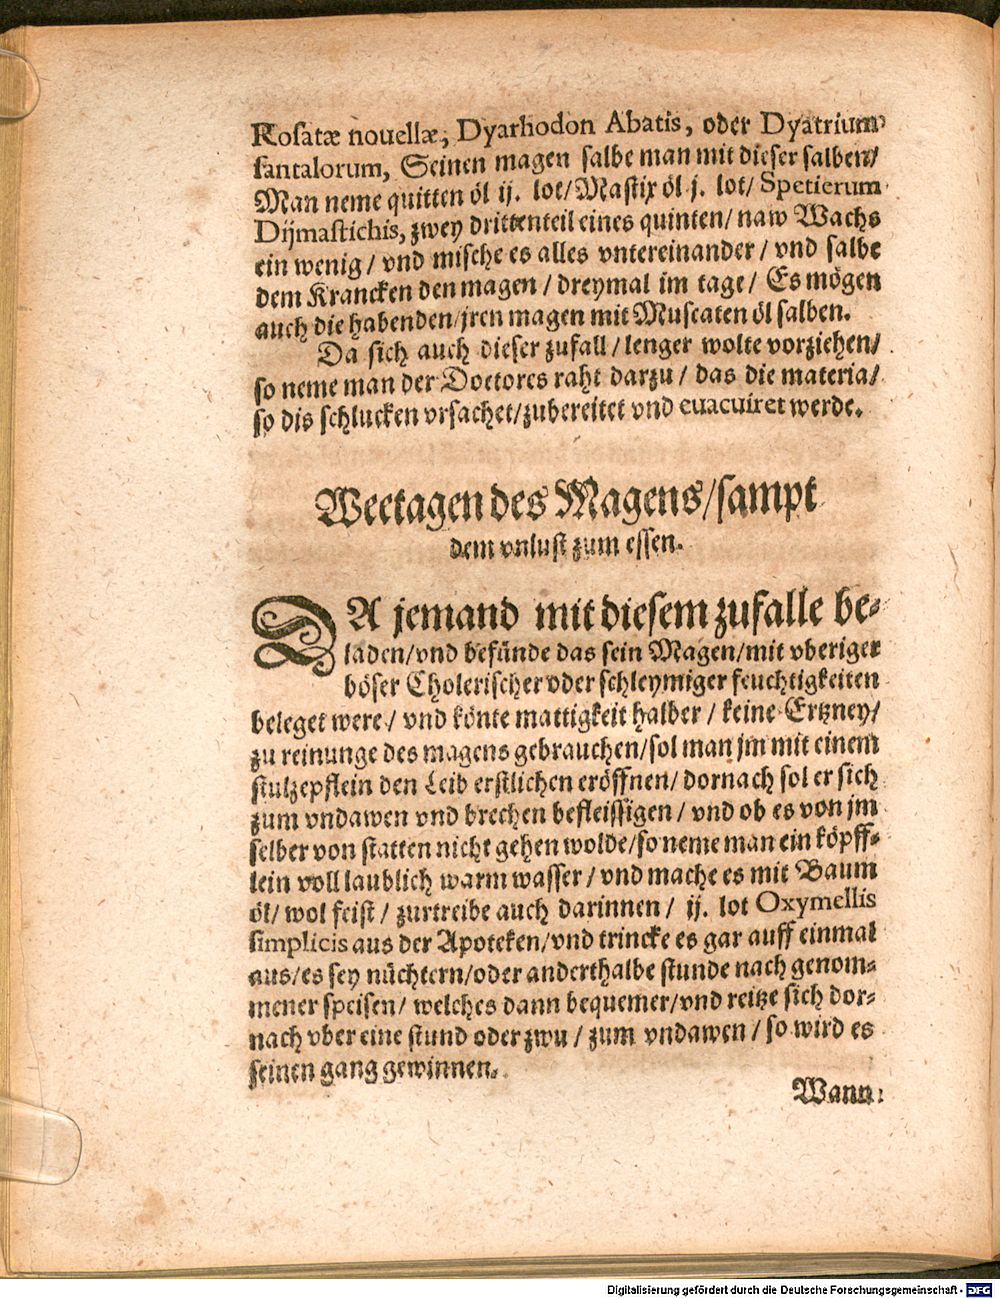 Rosatæ novellæ, Dyarhodon Abatis, oder Dyatrium
santalorum, Seinen magen salbe man mit dieser salben/
Man neme quitten öl ij. lot/ Mastix öl j. lot/ Spetierum
Dijmastichis, zwey drittenteil eines quinten/ naw Wachs
ein wenig/ vnd mische es alles vntereinander/ vnd salbe
dem Krancken den magen/ dreymal im tage/ Es mögen
auch die habenden/ jren magen mit Muscaten öl salben.
Da sich auch dieser zufall/ lenger wolte vorziehen/
so neme man der Doctores raht darzu/ das die materia/
so dis schlucken vrsachet/ zubereitet vnd euacuiret werde.
Weetagen des Magens/ sampt
dem vnlust zum essen.
DA jemand mit diesem zufalle be-
laden/ vnd befünde das sein Magen/ mit vberiger
böser Cholerischer oder schleymiger feuchtigkeiten
beleget were/ vnd könte mattigkeit halber/ keine Ertzney/
zu reinunge des magens gebrauchen/ sol man jm mit einem
stulzepflein den Leib erstlichen eröffnen/ dornach sol er sich
zum vndawen vnd brechen befleissigen/ vnd ob es von jm
selber von statten nicht gehen wolde/ so neme man ein köpff-
lein voll laublich warm wasser/ vnd mache es mit Baum
öl/ wol feist/ zurtreibe auch darinnen/ ij. lot Oxymellis
simplicis aus der Apoteken/ vnd trincke es gar auff einmal
aus/ es sey nüchtern/ oder anderthalbe stunde nach genom-
mener speisen/ welches dann bequemer/ vnd reitze sich dor-
nach vber eine stund oder zwu/ zum vndawen/ so wird es
seinen gang gewinnen.
Wann
Digitalisierung gefördert durch die Deutsche Forschungsgemeinschaft - DFG